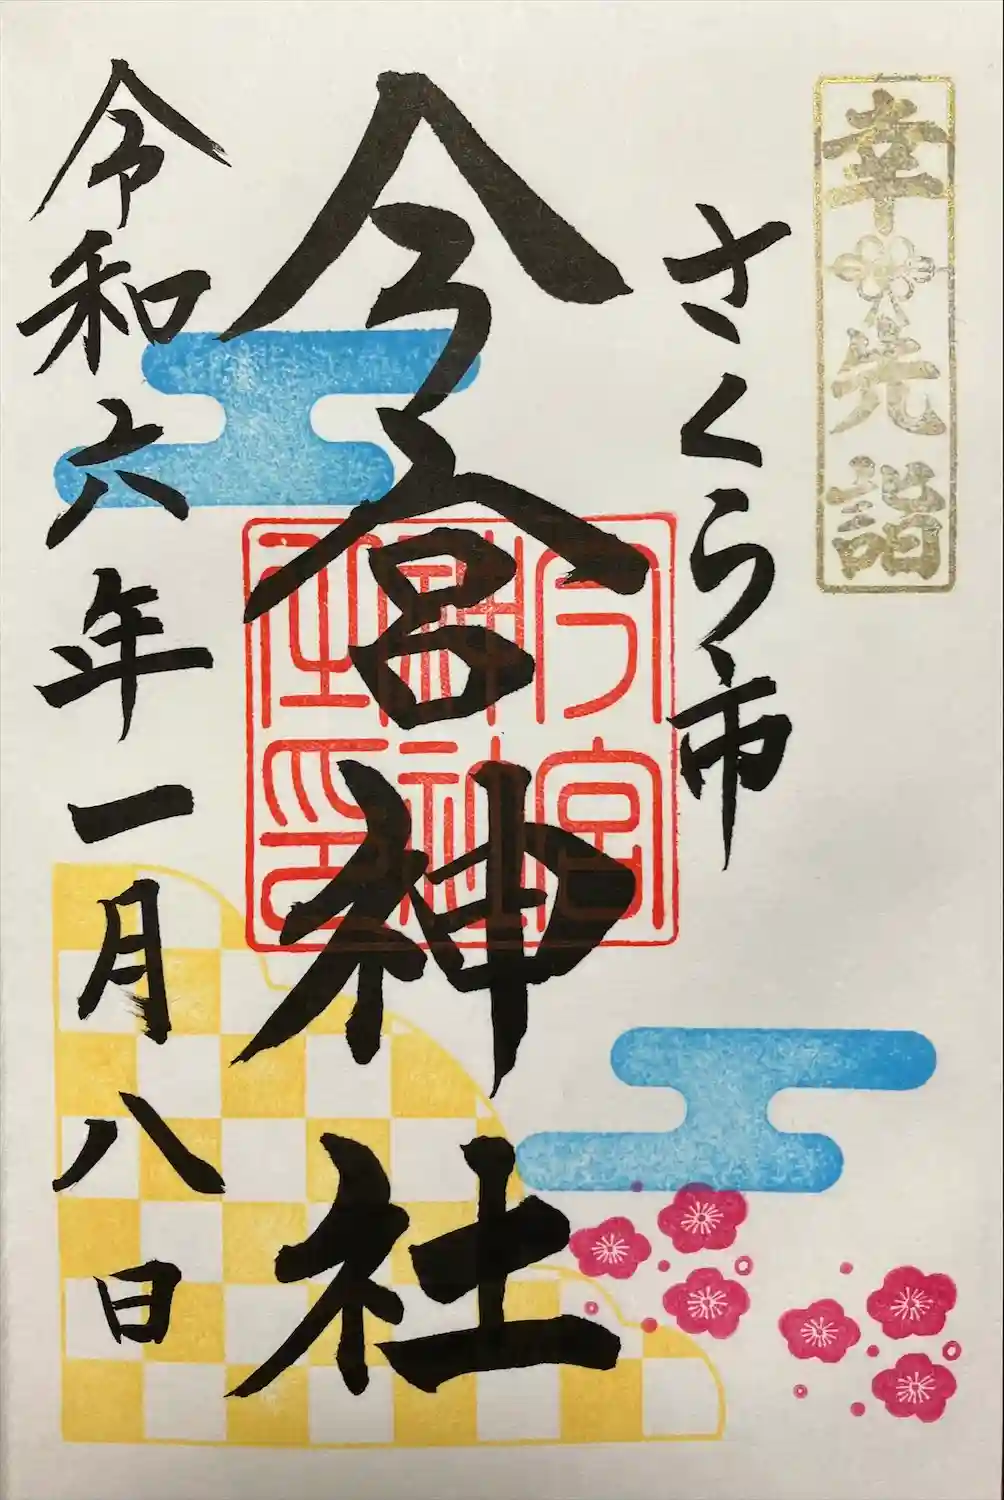 幸先詣
さくら市
今宮神社
今宮
神社
之印
令和六年一月八日